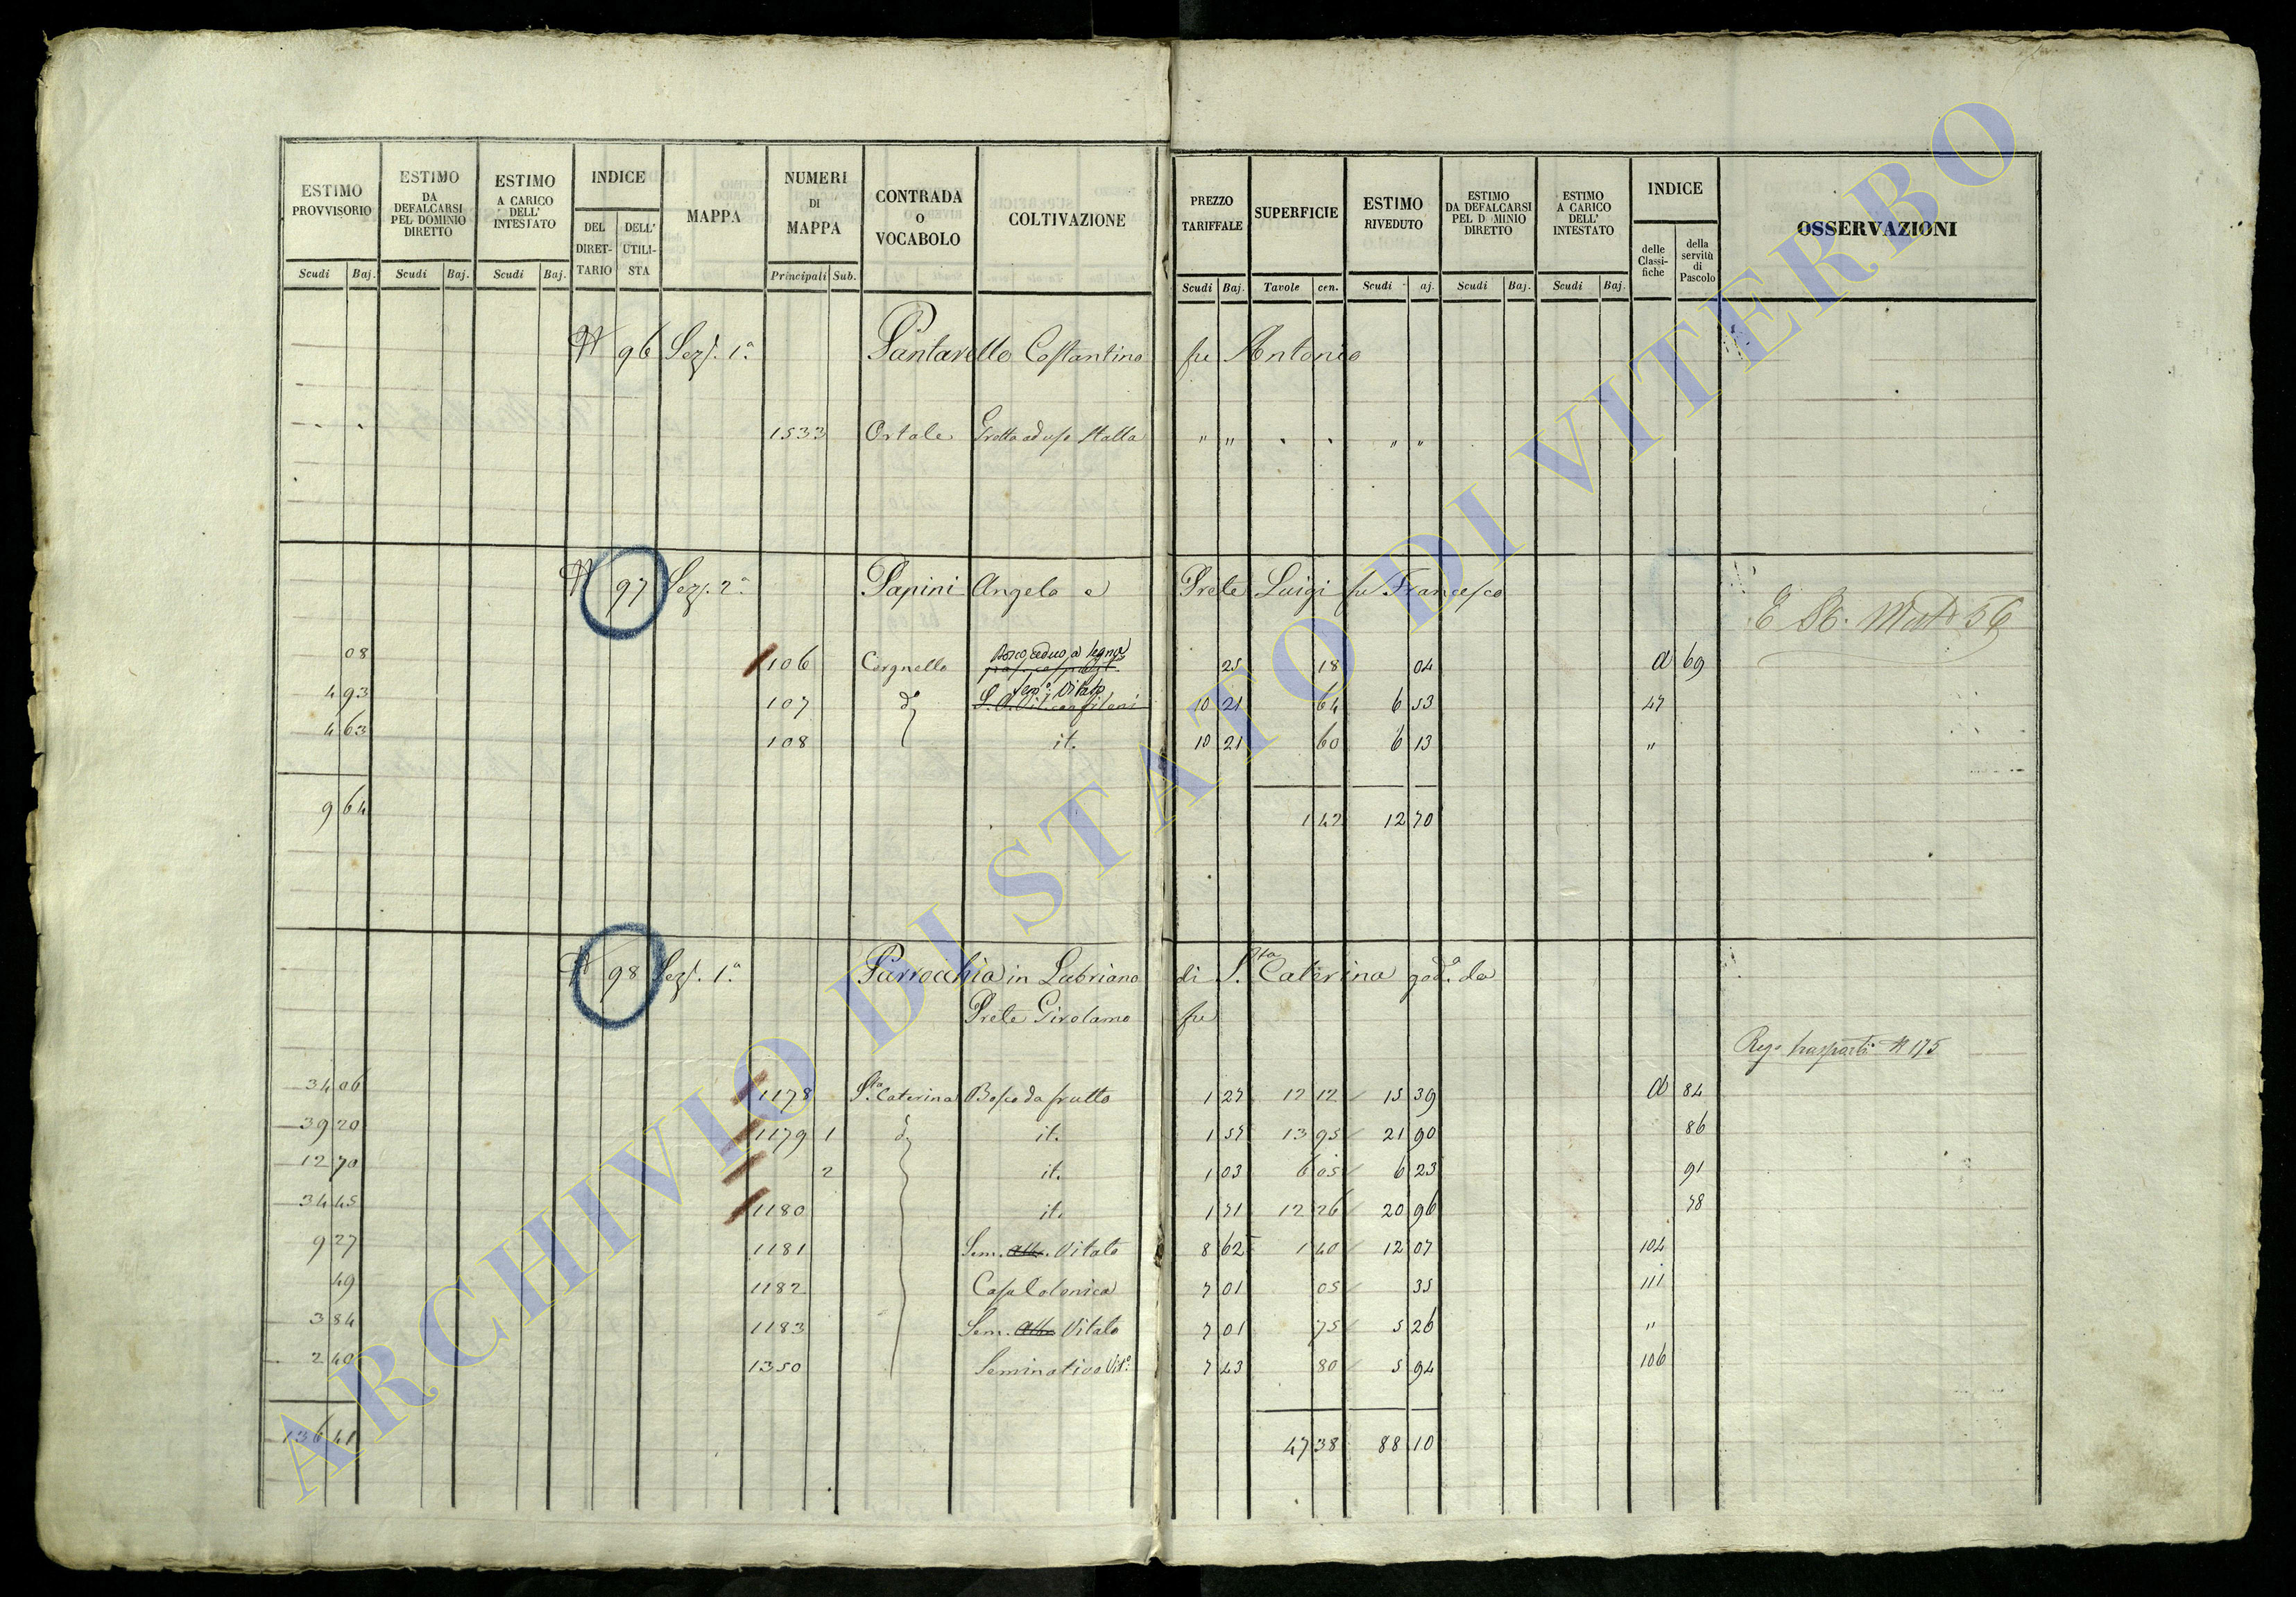 ESTIMO PROVVISORIO Scudi Baj.
ESTIMO DA DEFALCARSI PEL DOMINIO DIRETTO Scudi Baj.
ESTIMO A CARICO DELL' INTESTATO Scudi Baj.
INDICE DEL DIRETTARIO DELL' UTILISTA
MAPPA
NUMERI DI MAPPA Principali Sub.
CONTRADA O VOCABOLO
COLTIVAZIONE
PREZZO TARIFFALE Scudi Baj.
SUPERFICIE Tavole cen.
ESTIMO RIVEDUTO Scudi aj.
ESTIMO DA DEFALCARSI PEL D MINIO DIRETTO Scudi Baj.
ESTIMO A CARICO DELL' INTESTATO Scudi Baj.
INDICE delle Classifiche della servitù di Pascolo
OSSERVAZIONI
N 96 Sez. 1ª Pantarello Costantino fu Antonio
1533 Ortale Grotta ad uso Stalla " " " "
N 97 Sez. 2ª Papini Angelo e Prete Luigi fu Francesco
08 106 Corgnello Bosco ceduo a legna 25 18 04 a 69
4 93 107 dº Semº Vitato 10 21 64 6 53 47
4 63 108 it. 10 21 60 6 13 "
9 64 1 42 12 70
N 98 Sez. 1ª Parrocchia in Lubriano di S.ta Caterina godª da
Prete Girolamo fu
Rego trasporti N 175
34 06 1178 S.ta Caterina Bosco da frutto 1 27 12 12 15 39 a 84
39 20 1179 1 dº it. 1 57 13 95 21 90 86
12 70 2 it. 1 03 6 05 6 23 91
34 45 1180 it. 1 71 12 26 20 96 78
9 27 1181 Sem. Alb. Vitato 8 62 1 40 12 07 104
49 1182 Casa Colonica 7 01 05 35 111
3 84 1183 Sem. Alb. Vitato 7 01 75 5 26 "
2 40 1350 Seminativo Vitº 7 43 80 5 94 106
136 41 47 38 88 10
ARCHIVIO DI STATO DI VITERBO